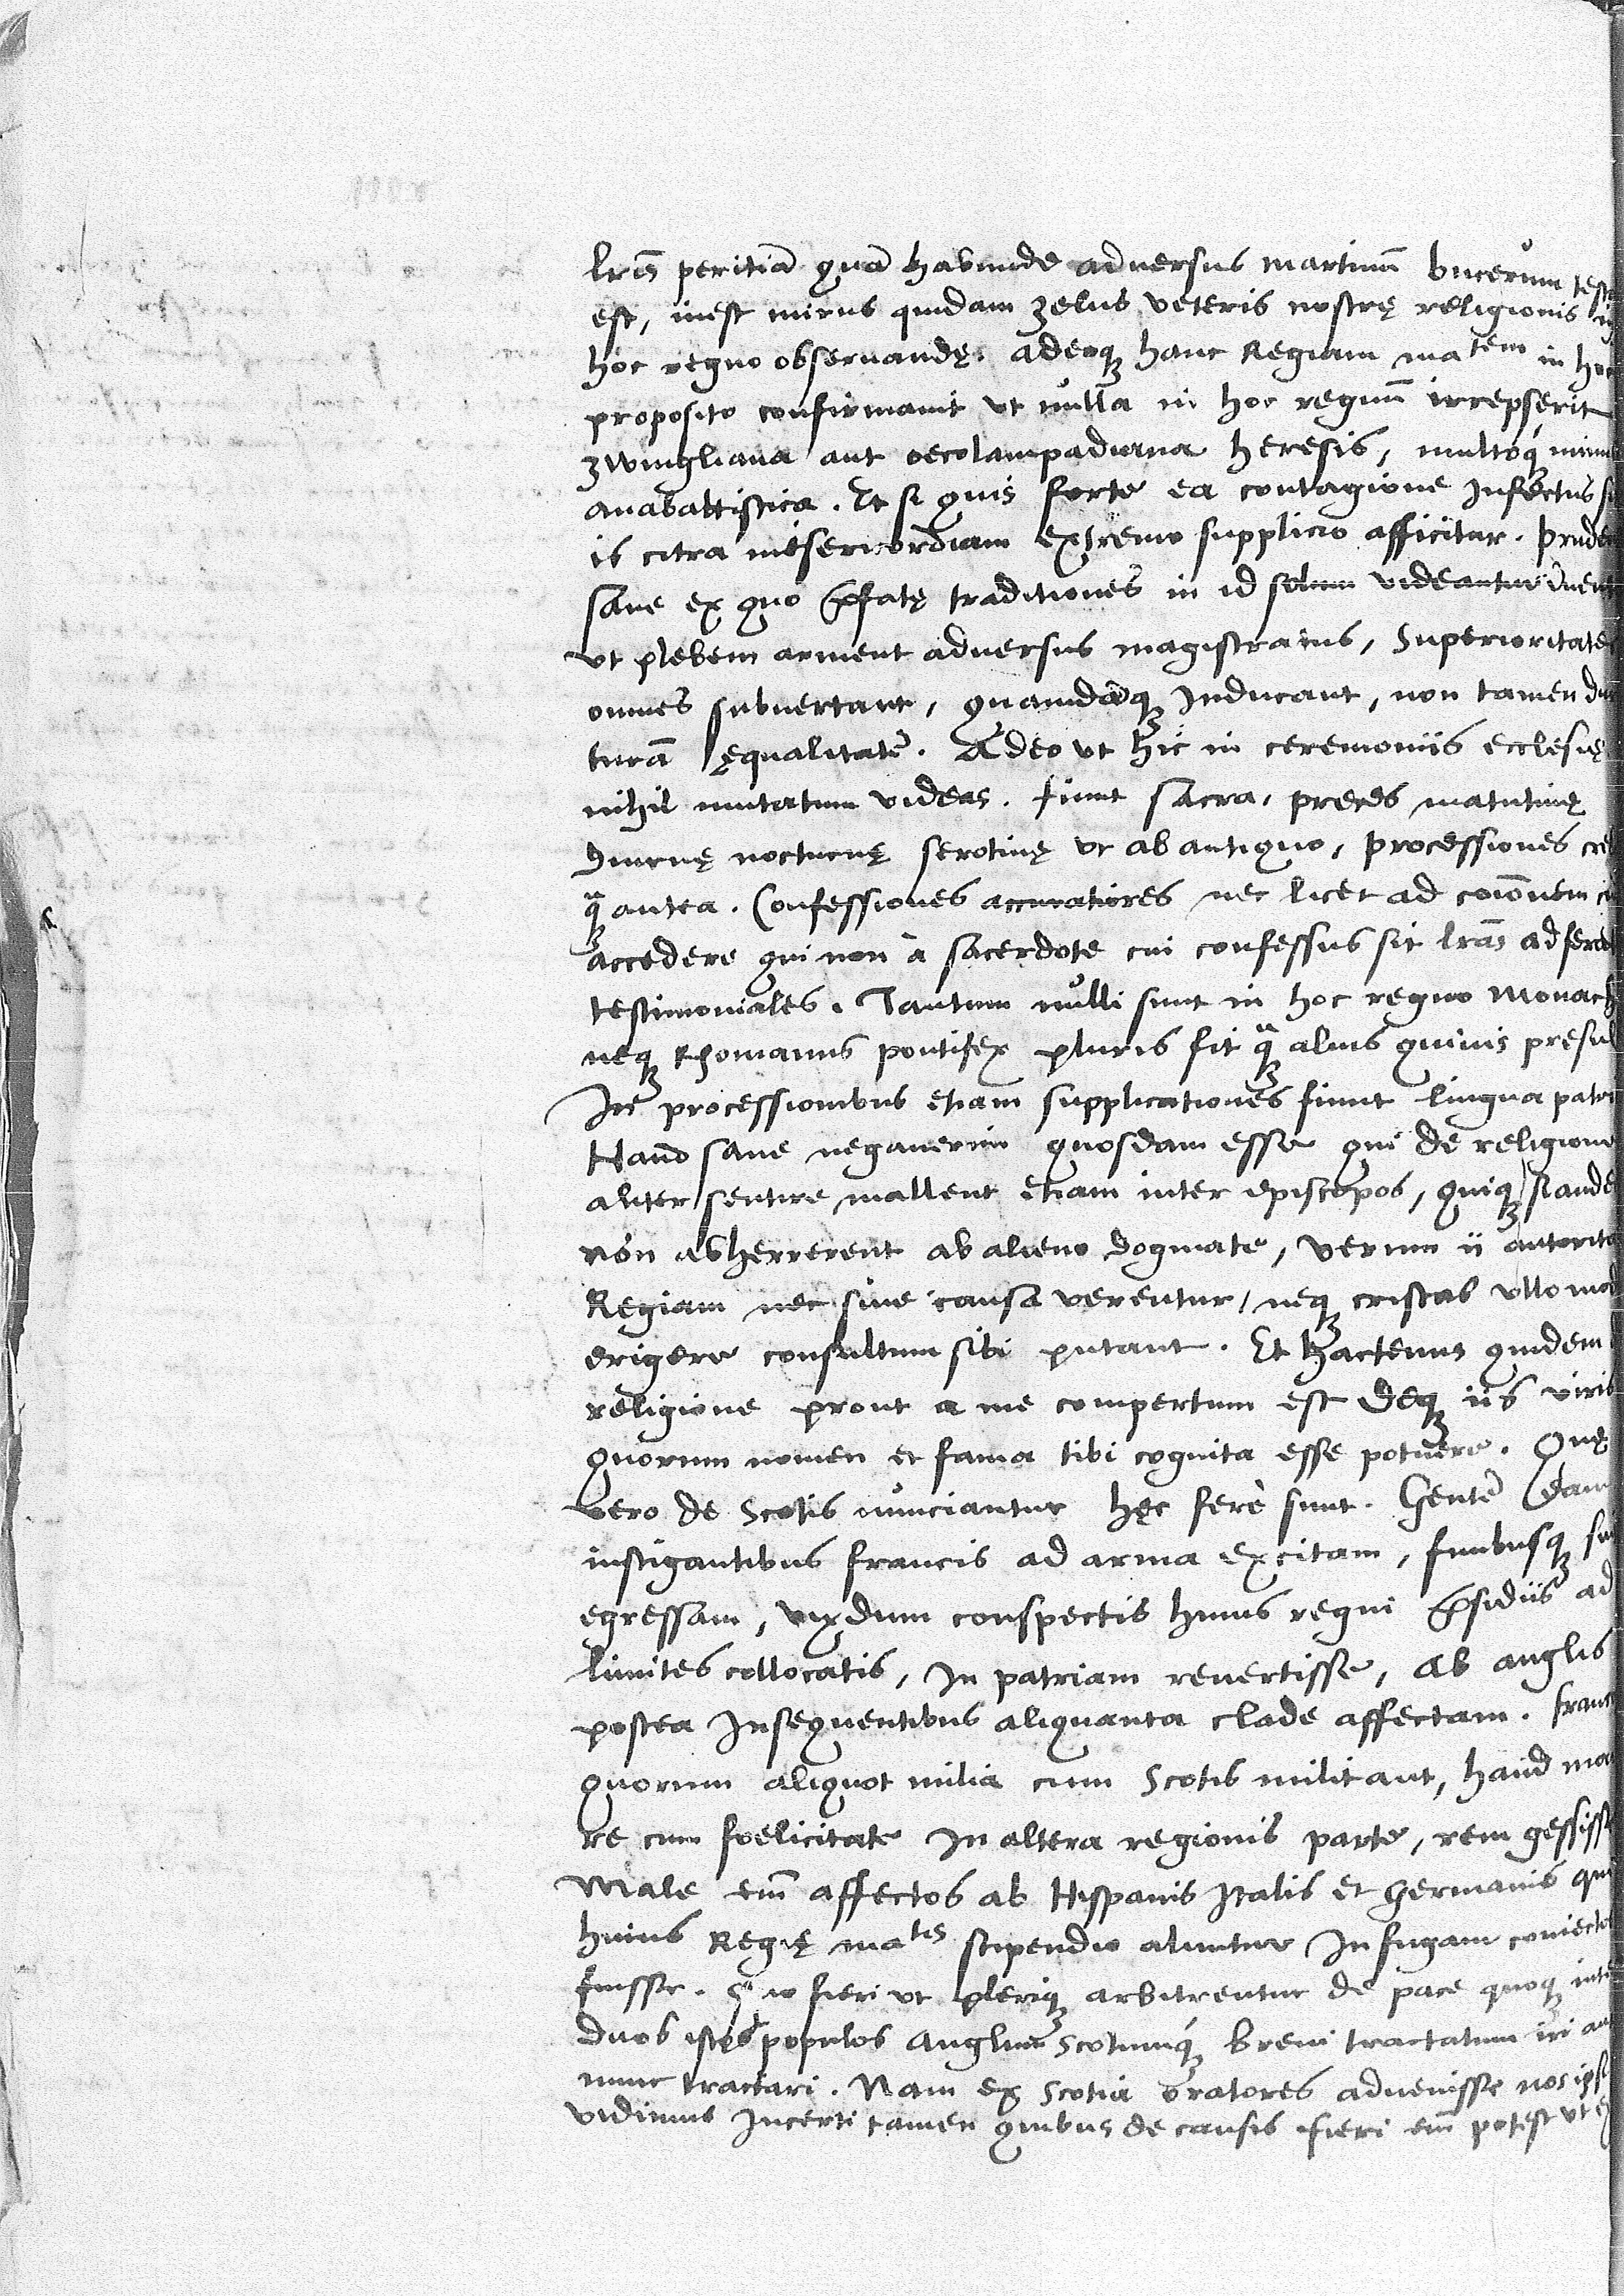 lr̄is peritiā quā habunde aduersus martinū bucerum testa
est, inest mirus quidam zelus veteris nostrę religionis in
hoc regno obseruandę. adeoqȝ hanc Regiam matem in hoc
proposito confirmauit vt nulla in hoc regnū irrepserit
zwingliana aut oecolampadiana heresis, multoq́ȝ minus
anabattistica. Et si quis forte ea contagione infectus si
is citra misericordiam extremo supplicio afficitur. Prude
sane ex quo p̄fatę traditiones in id solum videantur inuent
vt plebem arment aduersus magistratus, Superioritates
omnes subuertant, quamdāqȝ inducant, non tamen du
turā ęqualitatē. Adeo vt hic in ceremoniis ecclesię
nihil mutatum videas. fiunt sacra, preces matutinę
diurnę nocturnę serotinę vt ab antiquo, processiones cre
qȝ antea. Confessiones accuratiores nec licet ad coīonem
accedere qui non à sacerdote cui confessus sit lr̄as adferat
testimoniales. Tantum nulli sunt in hoc regno Monach
neqȝ Rhomanus pontifex pluris fit qȝ alius quiuis presul
In processionibus etiam supplicationes fiunt lingua patri
Haud sane negauerim quosdam esse qui de religione
aliter sentire mallent etiam inter episcopos, quiqȝ si aude
non abhorrerent ab alieno dogmate, verum ii autorita
Regiam nec sine causa verentur, neqȝ cristas vllo mod
erigere consultum sibi putant. Et hactenus quidem
religione prout a me compertum est deqȝ iis viris
quorum nomen et fama tibi cognita esse potuere. Quę
vero de Scotis nunciantur hęc ferè sunt. Gentē eam
instigantibus francis ad arma excitam, finibusqȝ sui
egressam, vixdum conspectis huius regni p̄sidiis ad
limites collocatis, in patriam reuertisse, ab anglis
postea insequentibus aliquanta clade affectam. franc
quorum aliquot milia cum Scotis militant, haud ma
re cum foelicitate in altera regionis parte, rem gessisse
Male em̄ affectos ab Hispanis Italis et Germanis qui
huius Regię matis stipendio aluntur in fugam coniectos
fuisse. fieri vt pleriqȝ arbitrentur de pace quoqȝ inter
duos istos populos Anglum Scotumq́ȝ breui tractatum iri au
nunc tractari. Nam ex Scotia oratores aduenisse nos ipsi
vidimus incerti tamen quibus de causis fieri em̄ potest vt